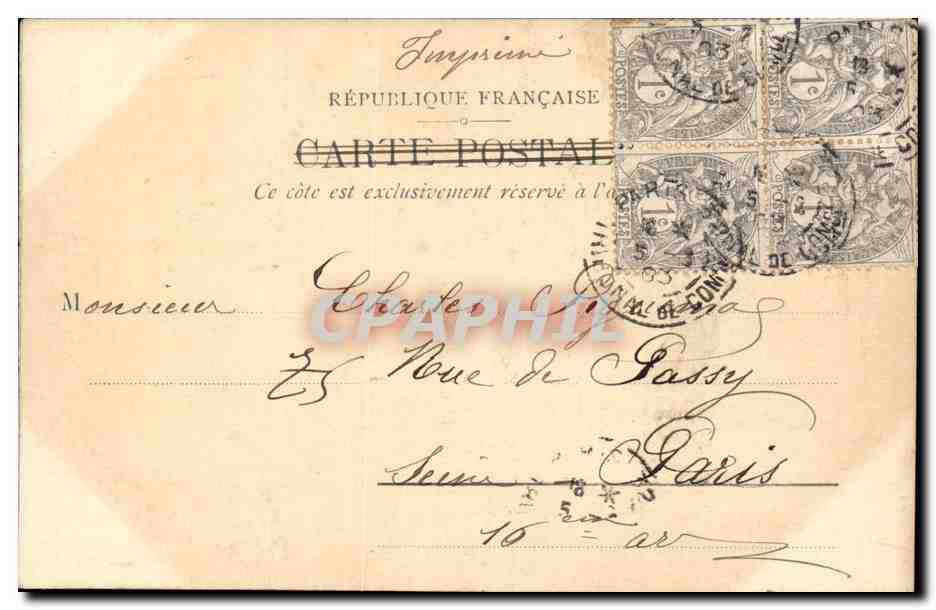 Imprimé
RÉPUBLIQUE FRANÇAISE
CARTE POSTAL
Ce côte est exclusivement réservé à l'a
POSTES 1c
POSTES 1c
POSTES 1c
POSTES
PARIS
5 03
Monsieur Charles
CPAPHIL
75 Rue de Passy
Seine Paris
16 eme arr